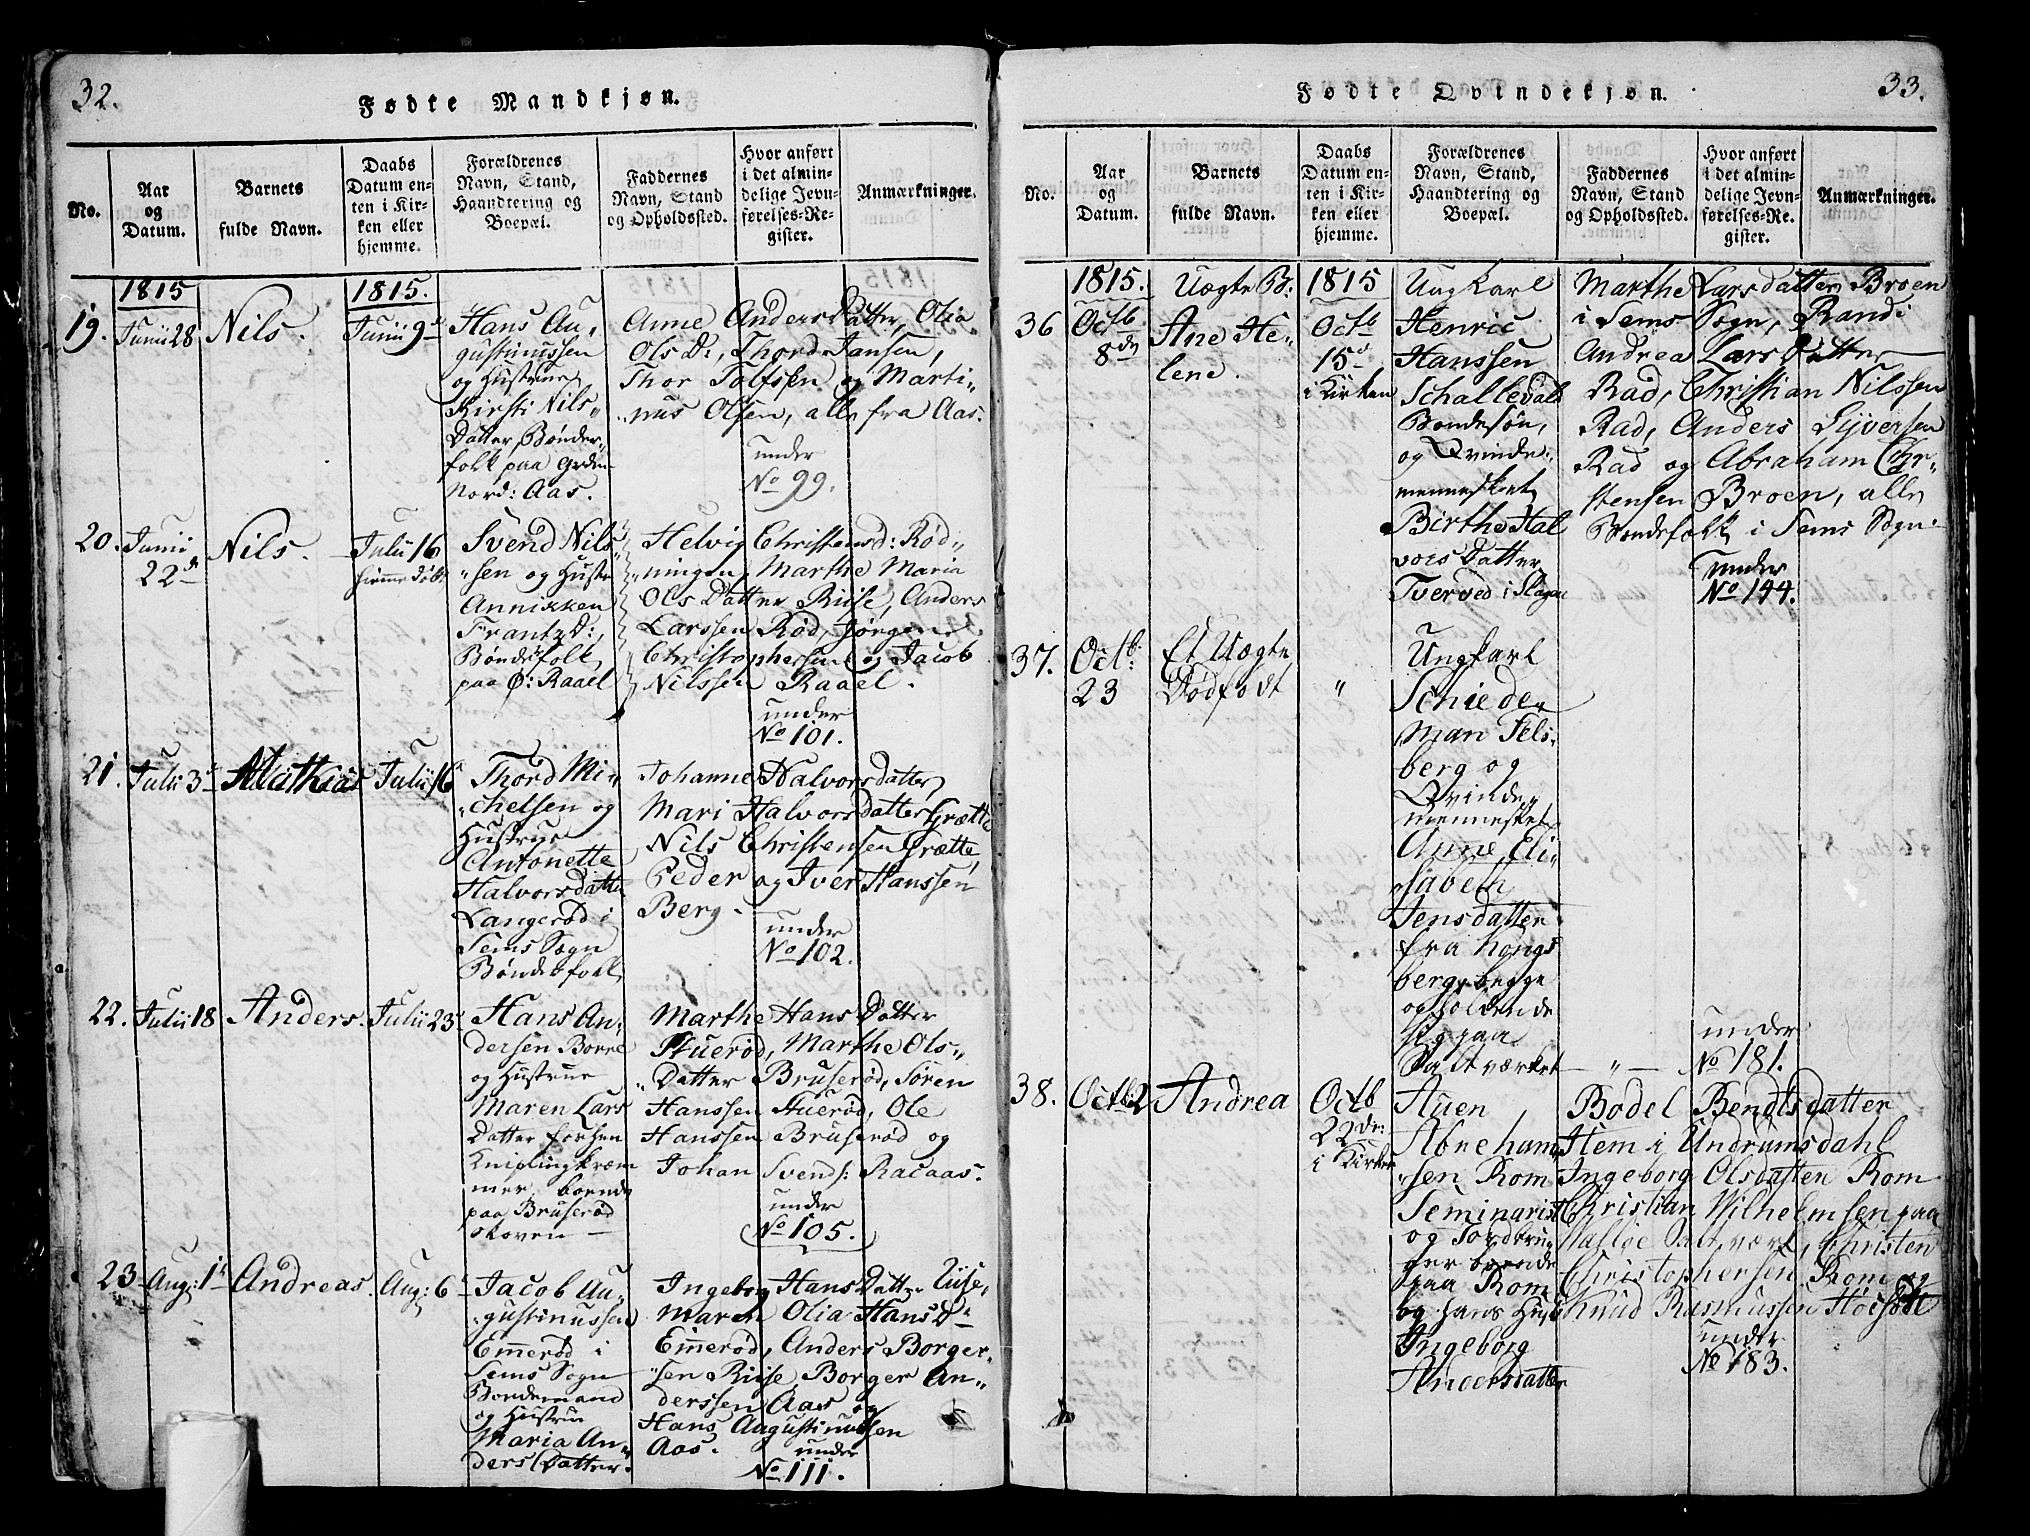 32.
Fødte Mandkjøn.
No.
Aar
og
Datum.
Barnets
fulde Navn.
Daabs
Datum en-
ten i Kir-
ken eller
hjemme.
Forældrenes
Navn, Stand,
Haandtering og
Boepæl.
Faddernes
Navn, Stand
og Opholdssted.
Hvor anført
i det almin-
delige Jevn-
førelses-Re-
gister.
Anmærkninger.
1815
1815.
19.
Junii 28
Nils.
Junii 9
Hans Au„
gustinussen
og Hustrue
Kirsti Nils„
Datter, Bønder„
folk paa
Nord: Aas.
Anne Anders Datter, Olia
Ols D:, Thord Jansen,
Thor Tolfsen og Marti„
„nus Olsen, alle fra Aas.
under
No 99.
20.
Junii
22 d
Nils.
Julii 16
hjemme døbt
Svend Nils„
„sen og Hustr
Annikken
Frantz D:,
Bøndefolk
paa Ø: Raael
Helvig Christensd: Rød„
„ningen, Marthe Maria
Ols Datter Riise, Anders
Larssen Rød, Jørgen
Christophersen og Jacob
Nilssen Raael.
under
No 101.
21.
Julii 3
Mathias
Julii 16
Thord Mi„
„chelsen og
Hustrue
Antonette
Halvorsdatter
Langerød i
Sems Sogn
Bøndefolk
Johanne Halvorsdatter
Mari Halvorsdatter Grætte
Nils Christensen Grætte,
Peder og Iver Hanssen
Berg.
under
No 102.
22.
Julii 18
Anders.
Julii 23
Hans An„
dersen Borre
og Hustrue
Maren Lars
Datter forhen
Kniplingkræm
mer, boende
paa Bruserød
skoven
Marthe Hans Datter
Stuerød, Marthe Ols„
„Datter Bruserød, Søren
Hanssen Stuerød, Ole
Hanssen Bruserød og
Johan Svends: Racaas
under
No 105.
23
Aug: 1
Andreas.
Aug: 6
Jacob Au„
„gustinussen
Emmerød i
Sems Sogn
Bondemand
og Hustrue
Maria An„
ders Datter.
Ingeborg Hans Datter Riise,
Maren Olia Hans D
Emmerød, Anders Borger„
„sen Riise Borger An„
derssen Aas og
Hans Augustinussen
Aas.
under
No 111.
33.
Fødte Qvindekjøn.
No.
Aar
og
Datum.
Barnets
fulde Navn.
Daabs
Datum en-
ten i Kir-
ken eller
hjemme.
Forældrenes
Navn, Stand,
Haandtering og
Boepæl.
Faddernes
Navn, Stand
og Opholdssted.
Hvor anført
i det almin-
delige Jevn-
førelses-Re-
gister.
Anmærkninger.
1815.
1815
36
Octb
8 de
Uægte B:
Ane He„
lene.
Octb
15
i Kirken
Ungkarl
Henric
Hanssen
Schallevold
Bondesøn,
og Qvinde„
mennesket
Birthe Hal
vors Datter
Tverved i Slagen
Marthe Larsdatter Broen
i Sems Sogn, Randi
Andrea Lars Datter
Rad, Christian Nilssen
Rad, Anders Syversen
Rad og Abraham Chr„
stensen Broen, alle
Bondefolk i Sems Sogn.
under
No 144.
37.
Octb:
23
Et Uægte
Dødfødt
„
Ungkarl
Schiede„
Man Sels„
berg og
Qvinde„
mennesket
Anne Eli„
„sabeth
Jensdatter
fra Kongs
berg, begge
opholdende
sig paa
Saltværket
„
under
No 181.
38.
Octb: 2
Andrea
Octb
22 de:
i Kirken
Auen
Abraham
„sen Rom
Seminarist
og Jordbru„
ger boende
paa Rom
og hans Hust
Ingeborg
Andersdatter
Bodel Bendtsdatter
Hem i Undrumsdahl
Ingeborg Olsdatter Rom
Christian Wilhelmsen paa
Vasløe Saltværk, Christen
Christophersen Rom og
Knud Rasmussen
under
No 183.